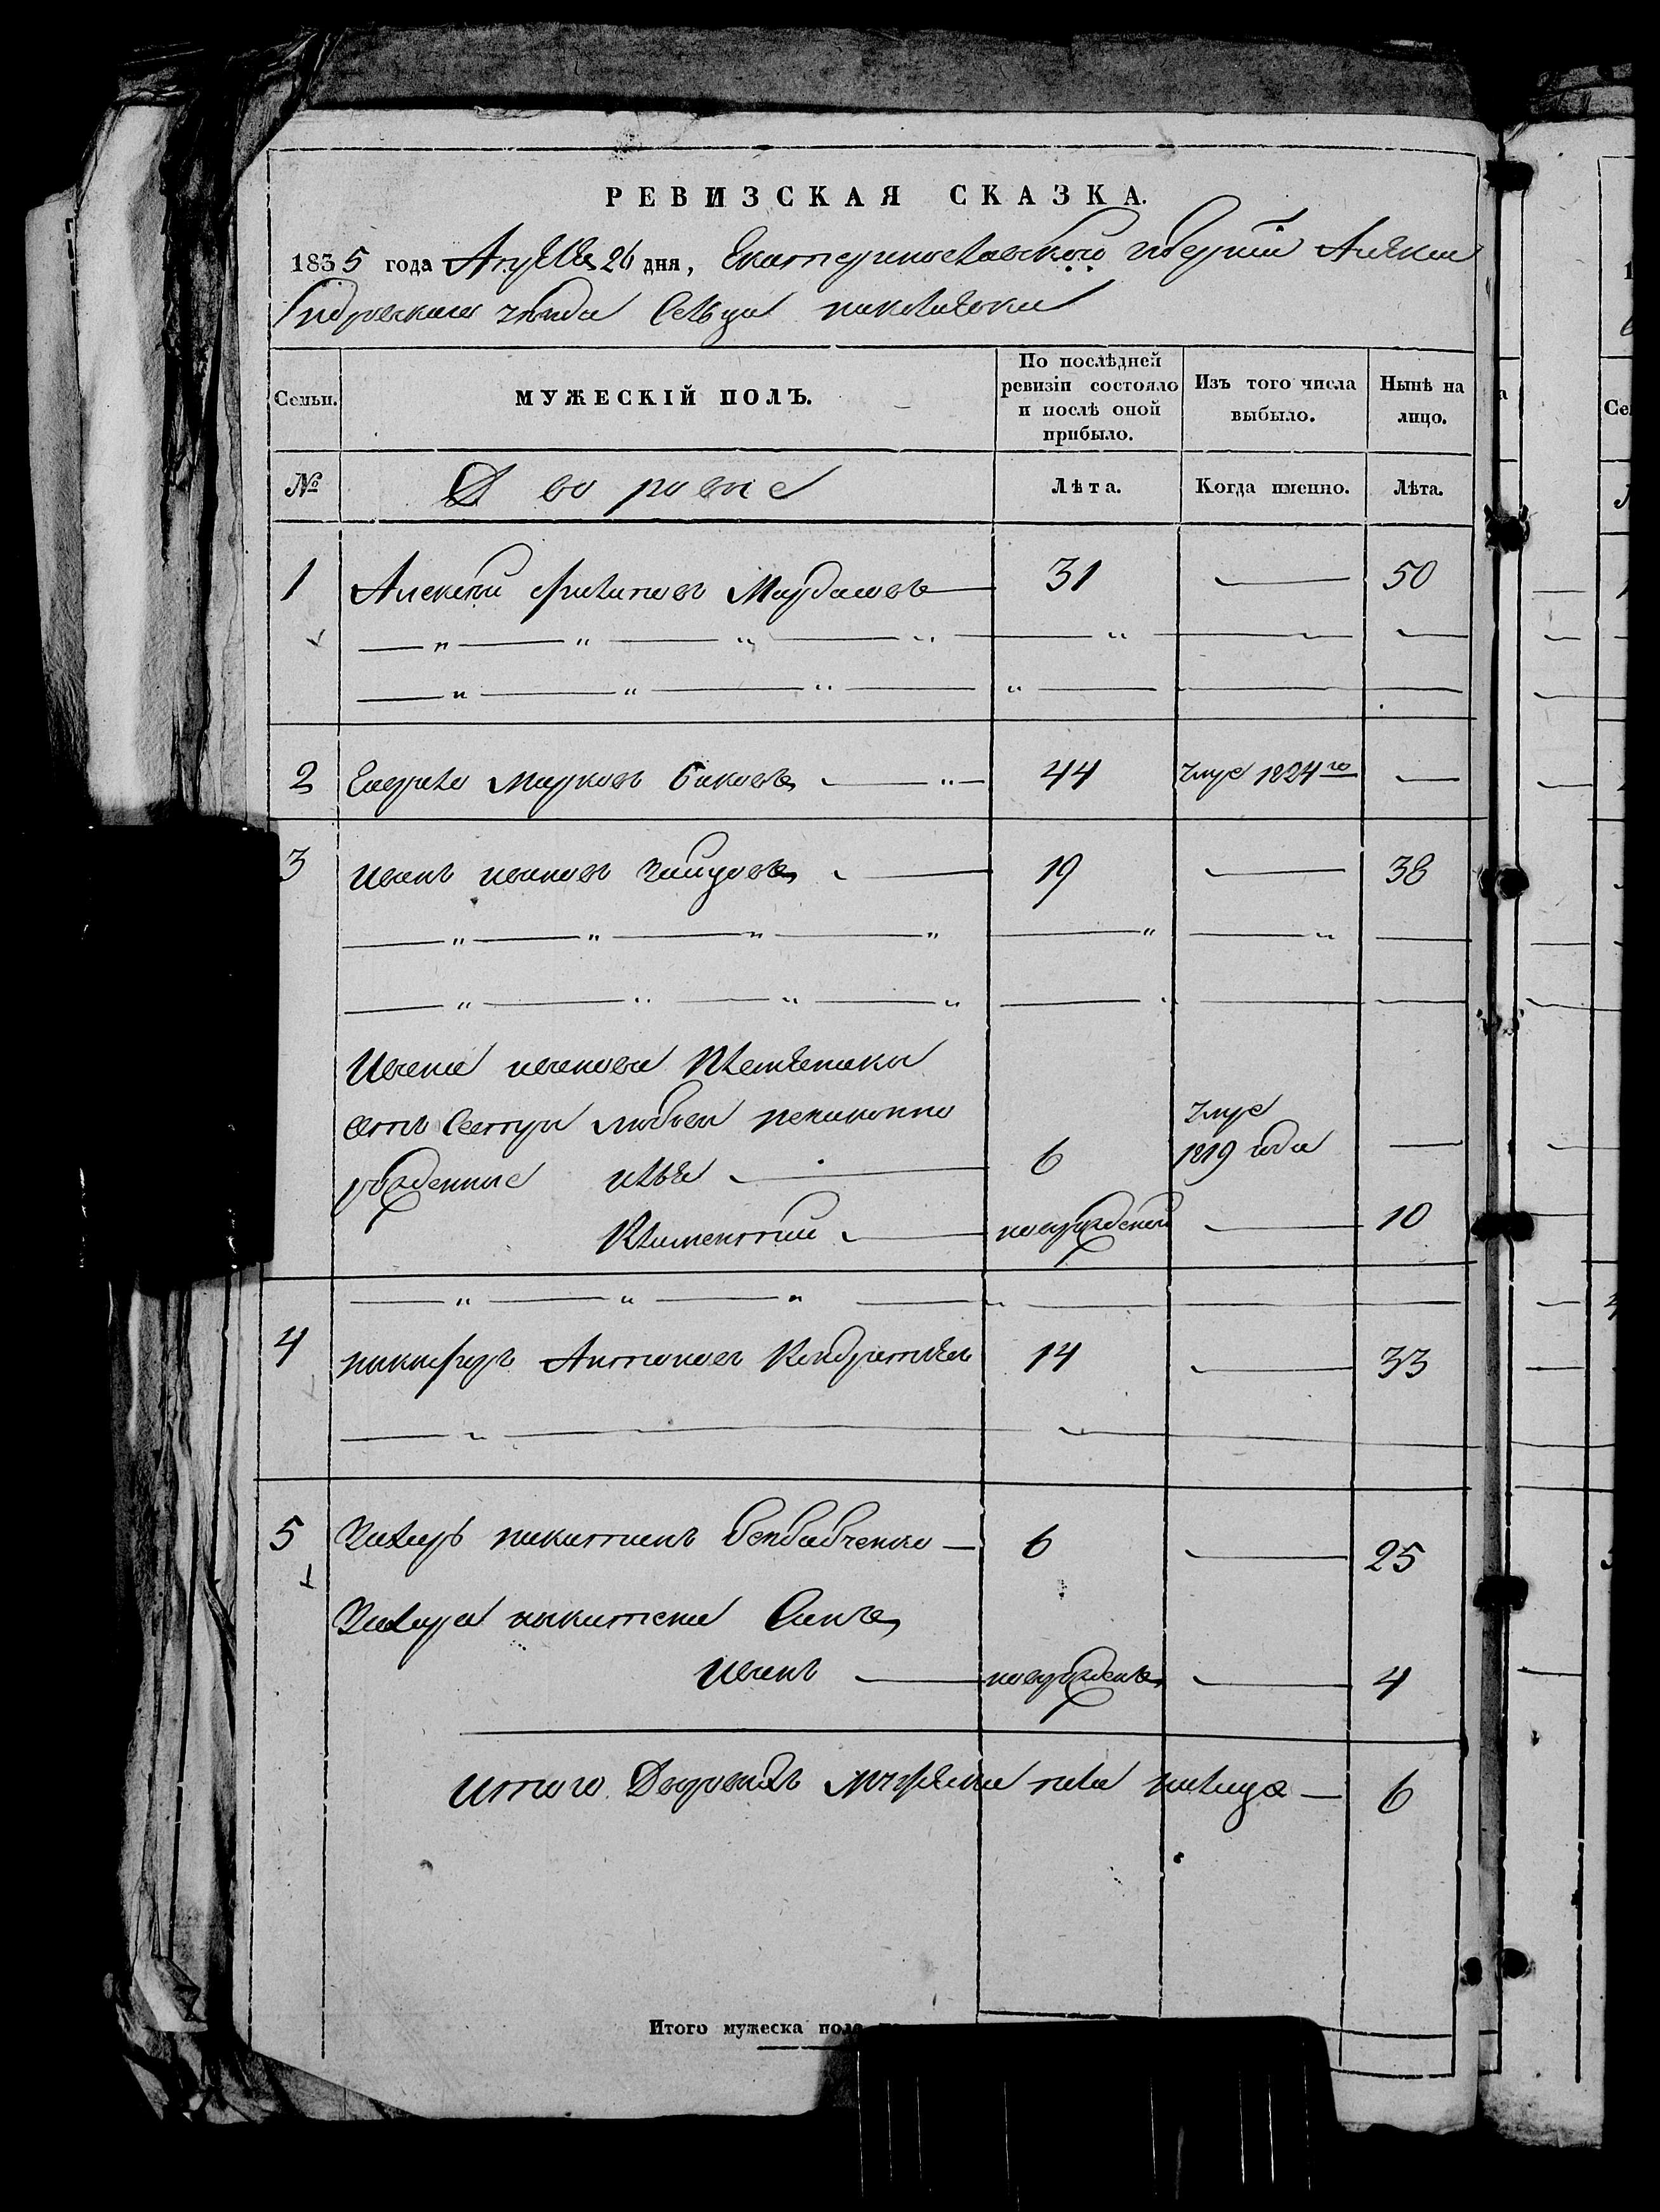 РЕВИЗСКАЯ СКАЗКА.
1835 года Апреля 26 дня, Екатеринославской губернии Алекса
ндровскаго уезда Сельца
Семьи. МУЖЕСКІЙ ПОЛЪ. По послѣдней ревизіи состояло и послѣ оной прибыло. Изъ того числа выбыло. Нынѣ на лицо.
№ Дворовые Лѣта. Когда именно. Лѣта.
1 Алексей Филипов 31 — 50
2 Гаврило Марков Биковъ 44 умре 1824го —
3 Иванъ иванов 19 — 38
Ивана иванова племенники
отъ Сестри любови незаконно
рожденные илья 6 умре 1819 года —
Климентий новорожденой — 10
4 никифоръ Антонов Кондратьевъ 14 — 33
5 Захаръ никитинъ 6 — 25
Захара никитена Синъ
Иванъ новорожденъ — 4
Итого Дворовихъ мужеска пола налице — 6
Итого мужеска пола